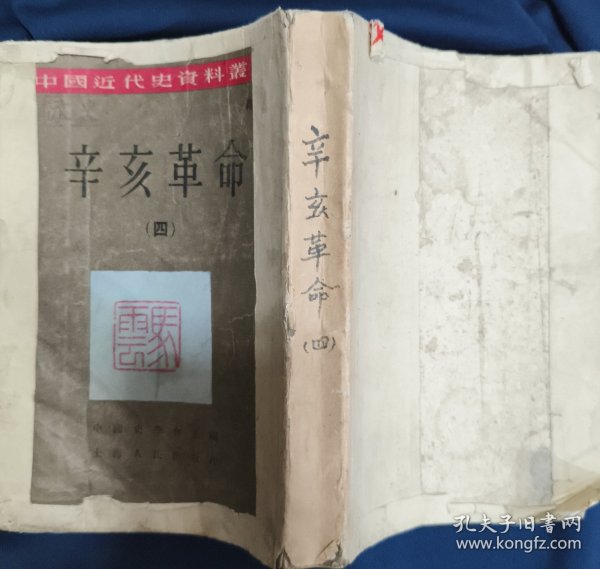 中國近代史資料叢
辛亥革命
(四)
馬雲
中國史學會主編
上海人民出版社
辛亥革命
(四)
孔夫子旧书网
www.kongfz.com